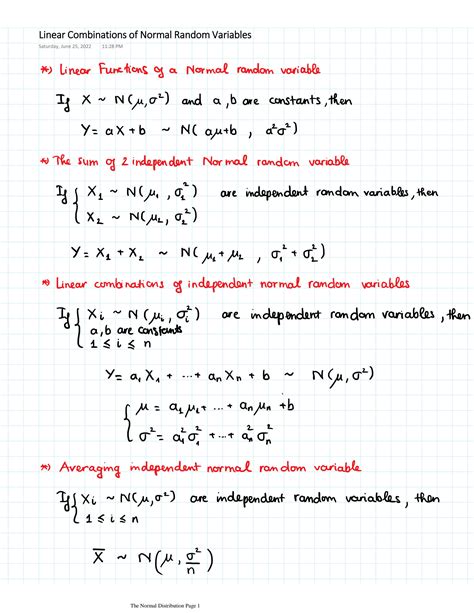 Linear Combinations of Normal Random Variables
Saturday, June 25, 2022 11:28 PM
*) Linear Functions of a Normal random variable
If X ~ N(μ,σ²) and a,b are constants, then
Y = aX + b ~ N( aμ+b , a²σ²)
*) The sum of 2 independent Normal random variable
If { X₁ ~ N(μ₁ , σ₁²) are independent random variables, then
X₂ ~ N(μ₂, σ₂²)
Y = X₁ + X₂ ~ N( μ₁ + μ₂ , σ₁² + σ₂²)
*) Linear combinations of independent normal random variables
If { Xi ~ N(μi , σi²) are independent random variables, then
a, b are constants
1 ≤ i ≤ n
Y = a₁X₁ + ... + anXn + b ~ N(μ, σ²)
{ μ = a₁μ₁ + ... + anμn + b
σ² = a₁²σ₁² + ... + an²σn²
*) Averaging independent normal random variable
If { Xi ~ N(μ,σ²) are independent random variables, then
1 ≤ i ≤ n
X̅ ~ N(μ, σ²/n)
The Normal Distribution Page 1